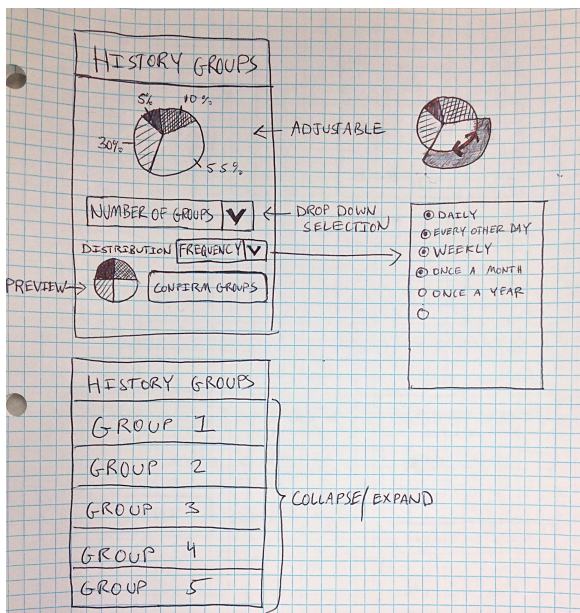 HISTORY GROUPS
5%
10%
30%
55%
ADJUSTABLE
NUMBER OF GROUPS
DROP DOWN
SELECTION
DISTRIBUTION
FREQUENCY
PREVIEW
CONFIRM GROUPS
DAILY
EVERY OTHER DAY
WEEKLY
ONCE A MONTH
ONCE A YEAR
HISTORY GROUPS
GROUP 1
GROUP 2
GROUP 3
GROUP 4
GROUP 5
COLLAPSE/EXPAND